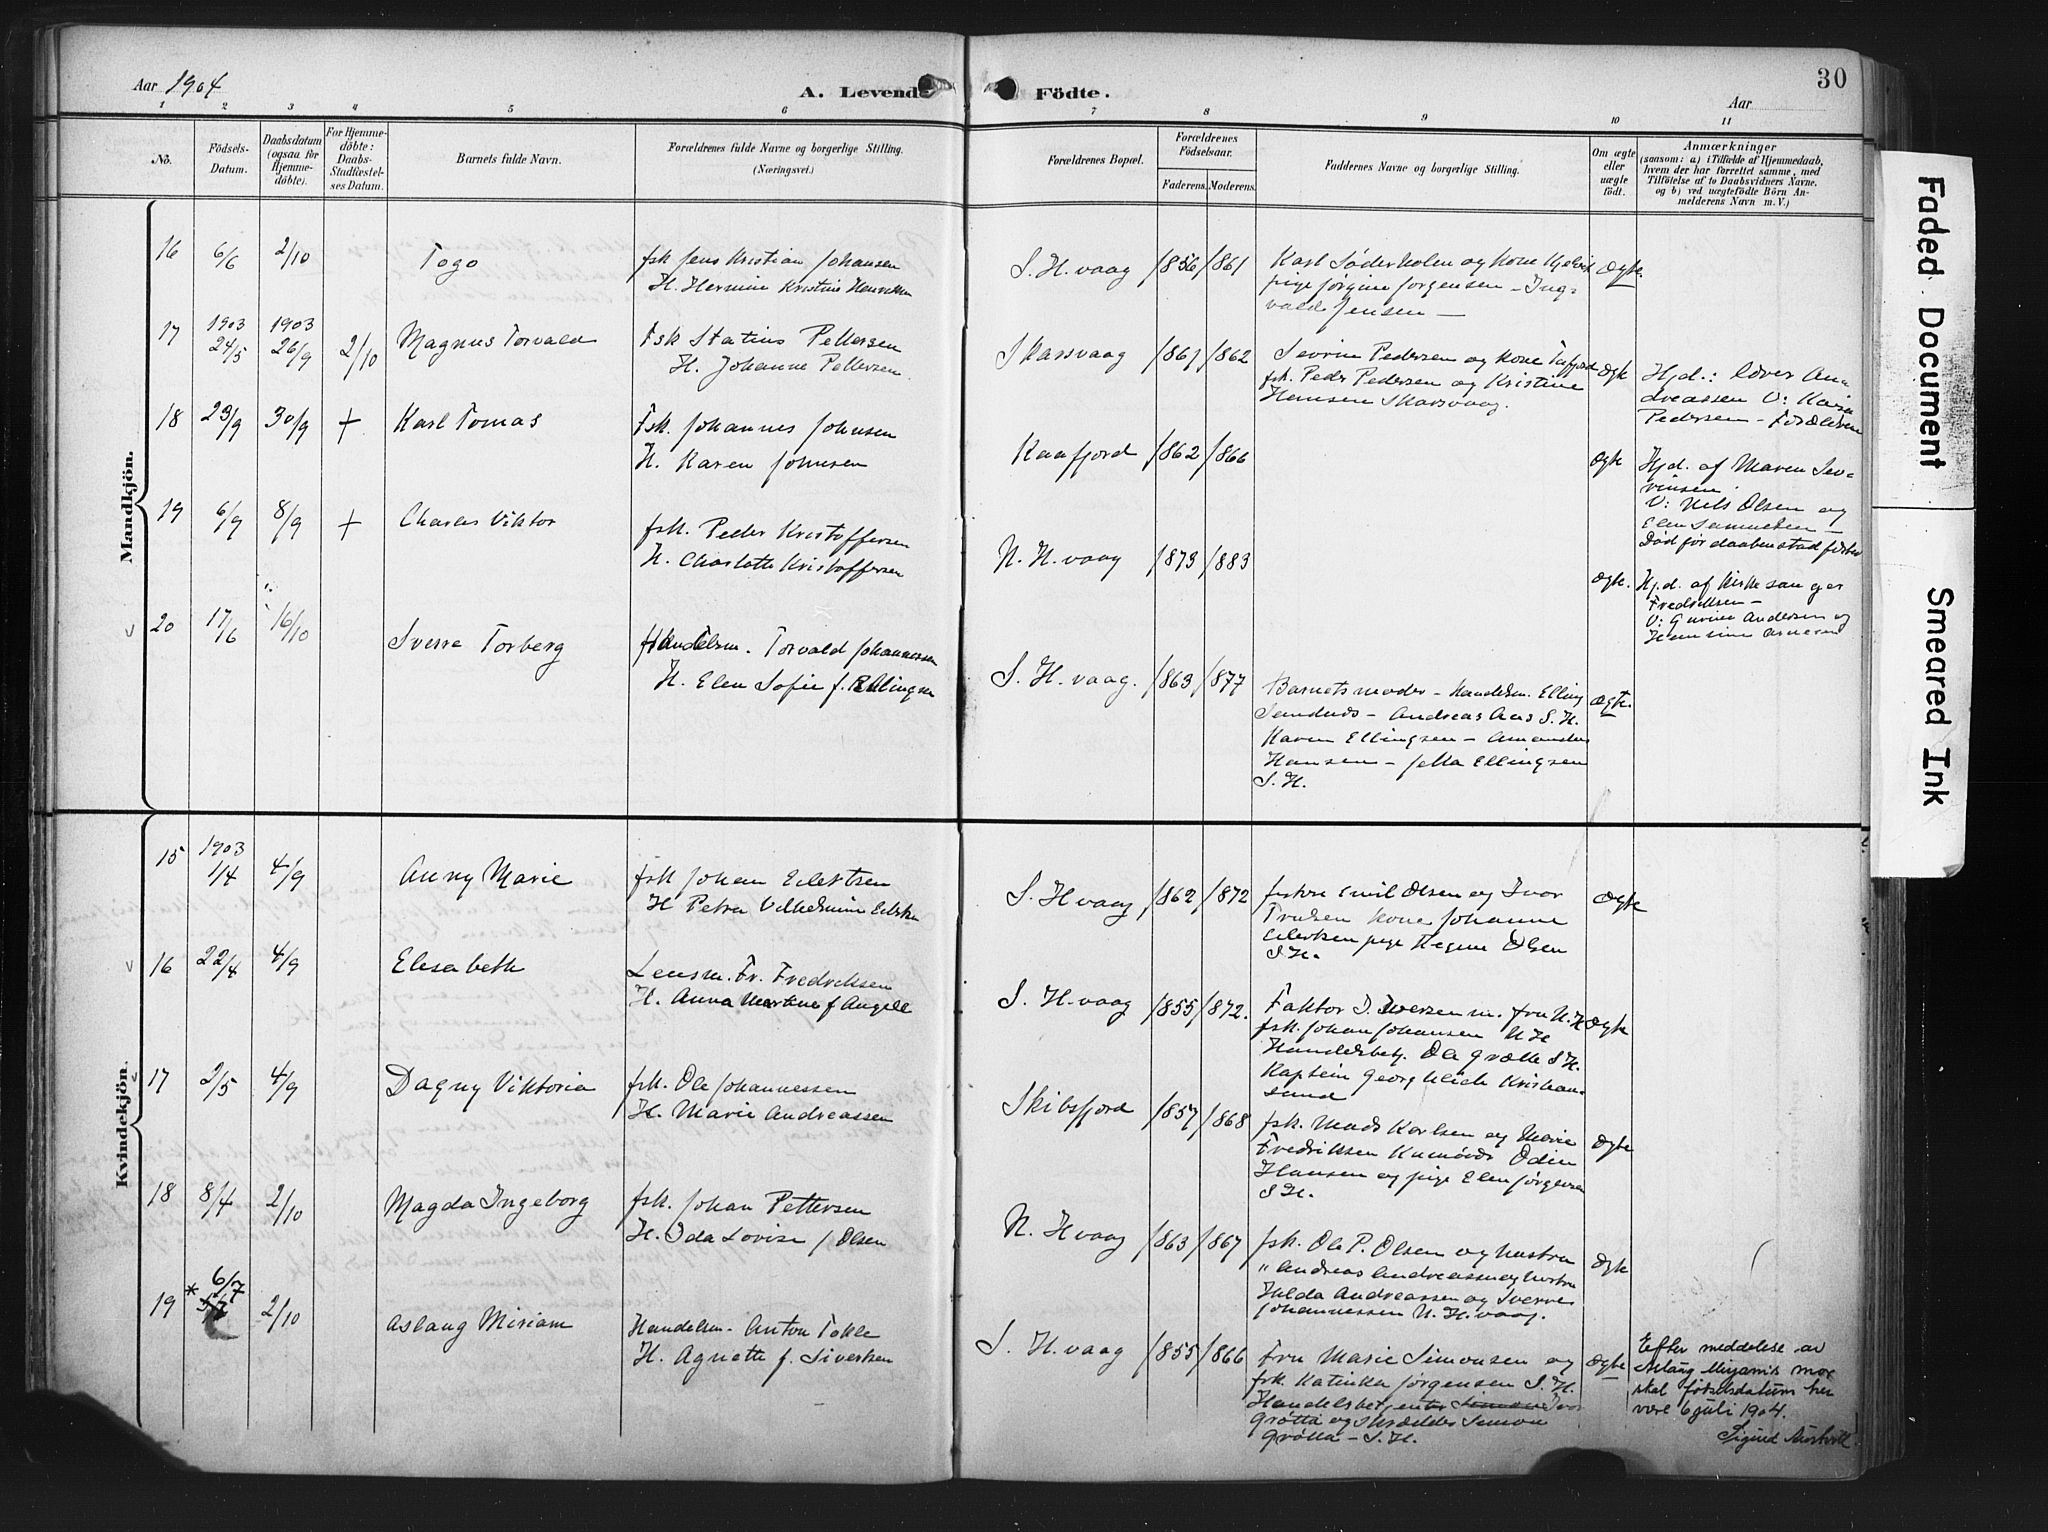 Aar 1904
A. Levende Födte.
30
Aar
1 2 3 4 5 6 7 8 9 10 11
No.
Födsels-Datum.
Daabsdatum (ogsaa for Hjemme-döbte).
For Hjemme-döbte: Daabs-Stadfæstel-ses Datum.
Barnets fulde Navn.
Forældrenes fulde Navne og borgerlige Stilling.
(Næringsvei.)
Forældrenes Bopæl.
Forældrenes Födselsaar.
Faderens. Moderens.
Faddernes Navne og borgerlige Stilling.
Om ægte eller uægte födt.
Anmærkninger
(saasom: a) i Tilfælde af Hjemmedaab,
hvem der har forrettet samme, med
Tilföielse af to Daabsvidners Navne.
og b) ved uægtefödte Börn An-
melderens Navn m. V.)
Mandkjön.
16 6/6 2/10 Togo
fsk Jens Kristian Johansen
H. Hermine Kristine Henriksen
S. H. vaag 1856 1861
Karl Söderholm og kone
pige Jörgine Jörgensen – Ing-
vald Jensen –
Ægte.
17 1903 24/5 1903 26/9 2/10 Magnus Torvald
Fsk Statius Pettersen
H. Johanne Pettersen
Skarsvaag 1861 1862
Sevrin Pedersen og kone
fsk. Peder Pedersen og Kristine
Hansen Skarsvaag.
Ægte
Hjd.: lærer An-
dreassen V: Kaja
Pedersen – Forældrene
18 23/9 30/9 + Karl Tomas
Fsk. Johannes Johnsen
H. Karen Johnsen
Kaafjord 1862 1866
Ægte
Hjd. af Maren Sev-
rinsen
V: Nils Olsen og
Elen Samuelsen –
Död för daaben stadfæstet
19 6/9 8/9 + Charles Viktor
fsk. Peder Kristoffersen
H. Charlotte Kristoffersen
N. H. vaag 1873 1883
Ægte.
Hjd. af kirkesanger
Fredriksen –
V: Gurine Andersen og
Hansine Arnesen
20 17/6 16/10 Sverre Torberg
Handelsm. Torvald Johannessen
H. Elen Sofie f. Ellingsen
S. H. vaag. 1863 1877
Barnets moder – Handelsm. Elling
– Andreas Aas S. H.
Karen Ellingsen – Amandus
Hansen – Jetta Ellingsen
S. H.
Ægte.
Kvindekjön.
15 1903 1/4 4/9 Anny Marie
fsk Johan Eilertsen
H Petra Vilhelmine Eilertsen
S. H vaag 1862 1872
fiskere Emil Olsen og Ivar
Trulsen kone Johanne
Eilertsen pige Regine Olsen
S. H.
Ægte
16 22/4 4/9 Elisabeth
Lensm. Fr. Fredriksen
H. Anna Martine f Angell
S. H. vaag 1855 1872.
Faktor I. Iversen m. fru N. H
fsk. Johan Johansen N H
Handelsbetj. Ole Grøtte S H.
Kaptein Georg Ulich Kristian-
sund
Ægte
17 2/5 4/9 Dagny Viktoria
fsk. Ole Johannessen
H. Marie Andreassen
Skibsfjord 1857 1868
fsk. Mads Karlsen og Marie
Fredriksen Odin
Hansen og pige Elen Jörgensen
S H.
Ægte
18 8/4 2/10 Magda Ingeborg
fsk. Johan Pettersen
H. Ida Lovise f Olsen
N. H vaag 1863 1867
fsk. Ole P. Olsen og hustru
" Andreas Andreassen og hustru
Hulda Andreassen og Sverre
Johannessen N. H. vaag.
Ægte
19 * 6/7 2/10 Aslaug Miriam
Handelsm. Anton Tokle
H. Agnette f. Sivertsen
S. H. vaag 1855 1866
Fru Marie Simonsen og
fsk. Katinka Jörgensen S. H.
Handelsbetjenter Simon Ivar
Grötta og Skrædder Simon
Grötta – S. H.
Ægte
Efter meddelelse av
Aslaug Mirjams mor
skal fødselsdatum her
være 6 juli 1904.
Sigurd
Faded Document
Smeared Ink